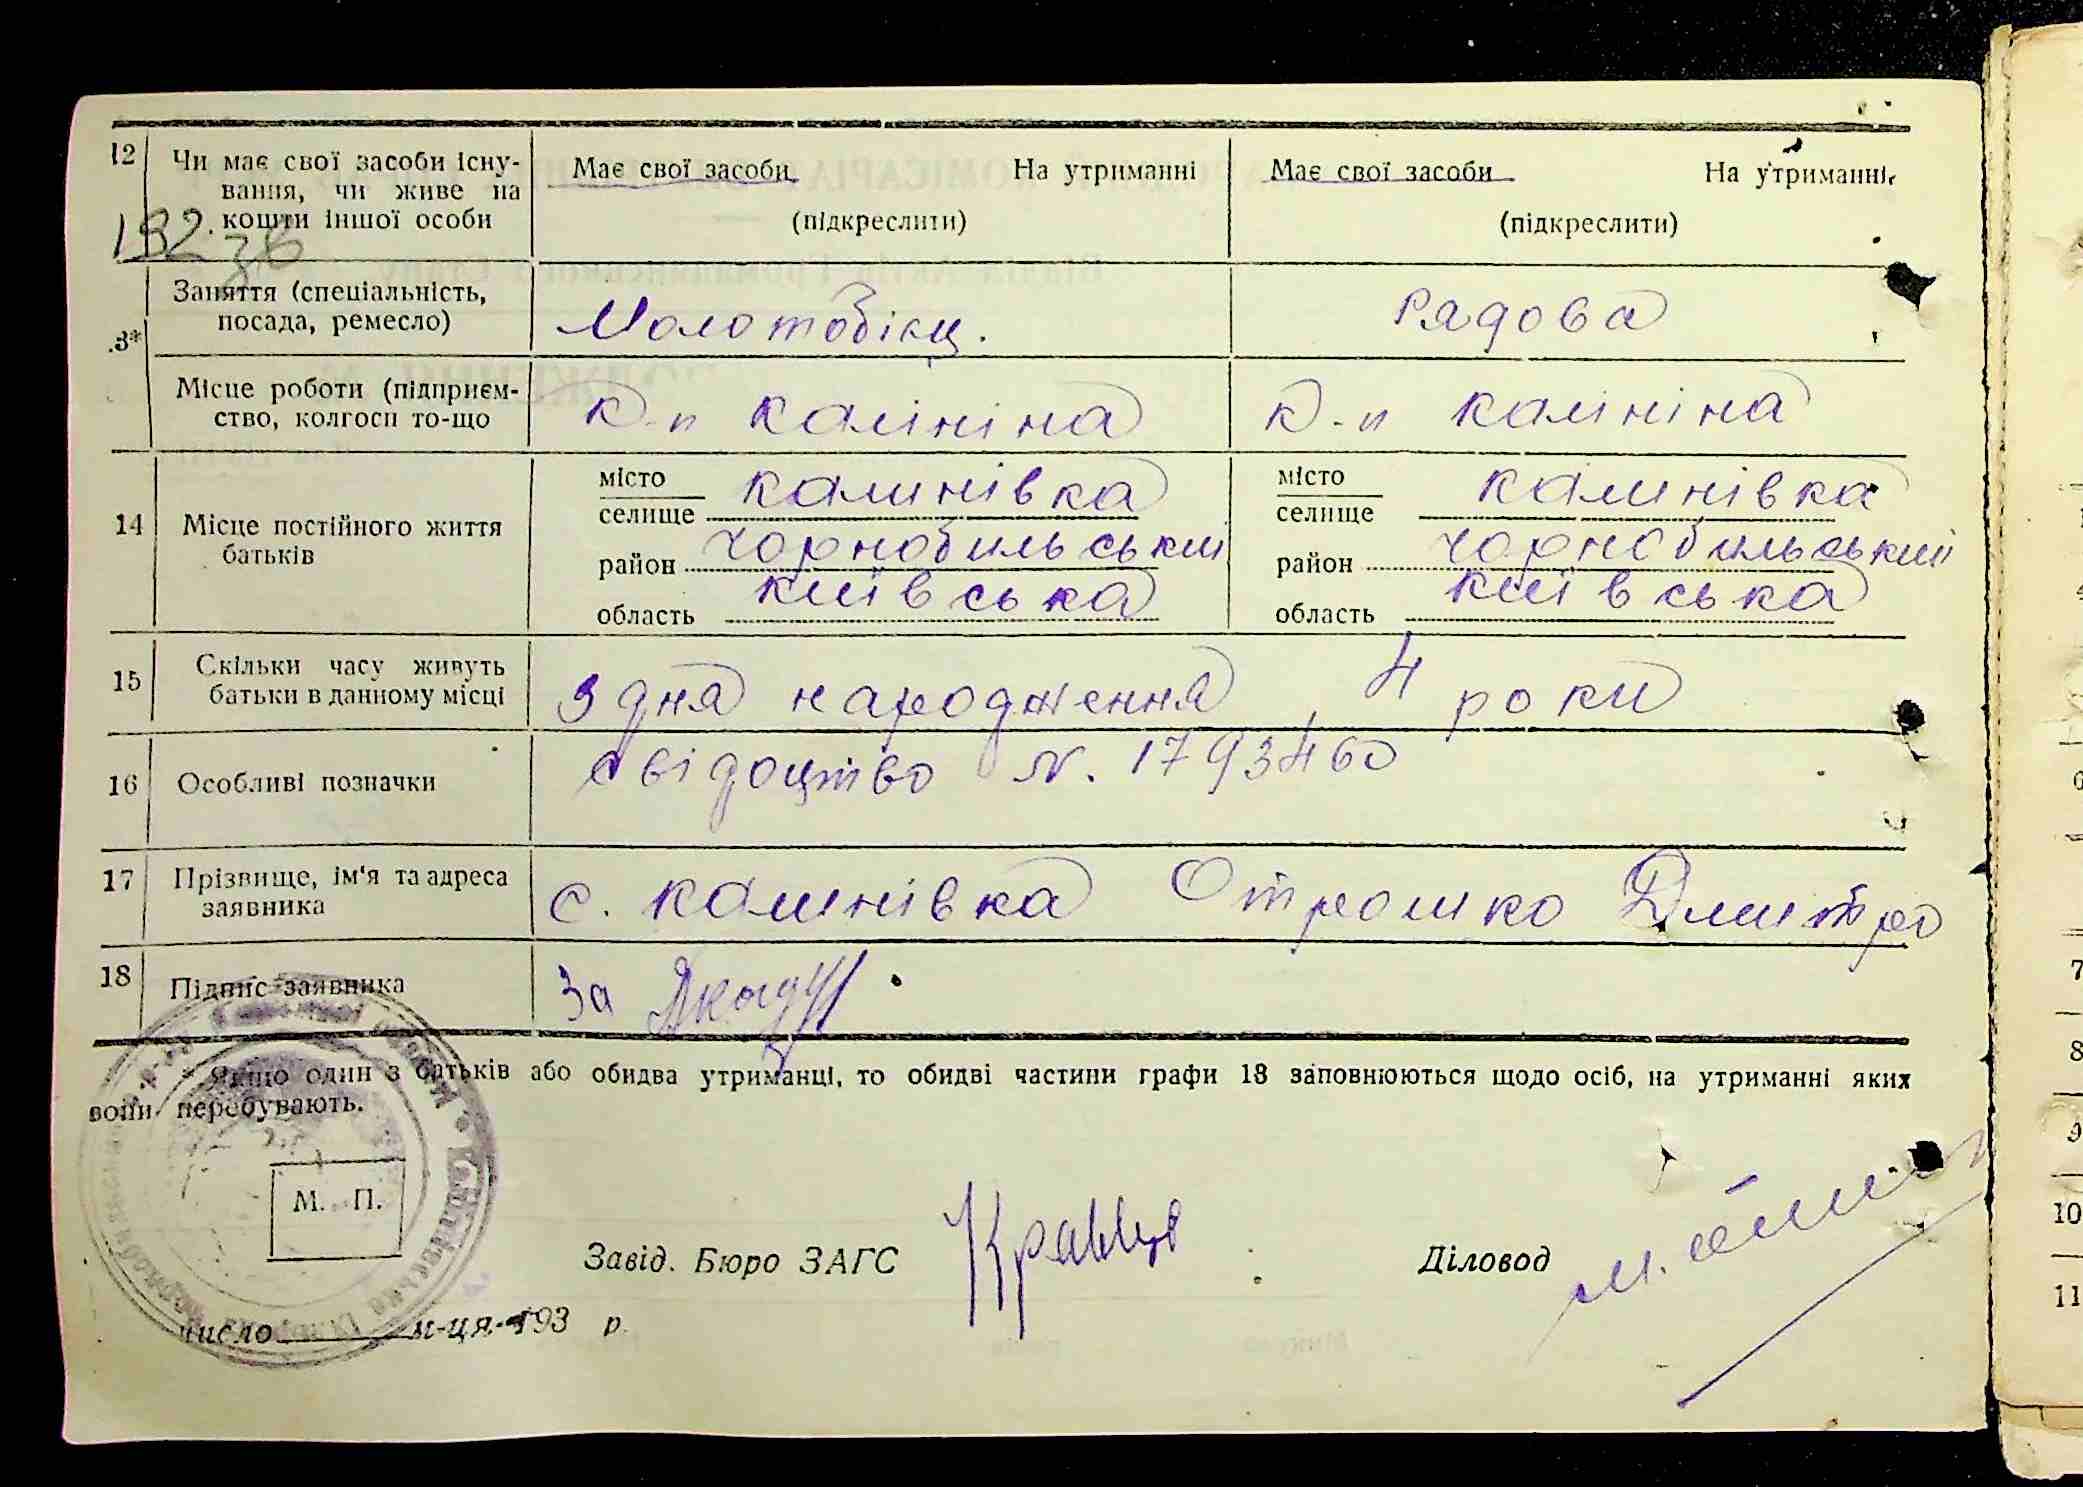 12 Чи має свої засоби існу-
вання, чи живе на
кошти іншої особи
Має свої засоби На утриманні
(підкреслити)
Має свої засоби На утриманні
(підкреслити)
182 зв
.3*
Заняття (спеціальність,
посада, ремесло)
Молотобієц.
Рядова
Місце роботи (підприєм-
ство, колгосп то-що
К-п Калініна
К-п Калініна
14 Місце постійного життя
батьків
місто
селище Калинівка
район Чорнобильський
область Київська
місто
селище Калинівка
район Чорнобильський
область Київська
15 Скільки часу живуть
батьки в данному місці
З дня народження, 4 роки
16 Особливі позначки
свідоцтво N. 1793460
17 Прізвище, ім'я та адреса
заявника
с. Калинівка Отрошко Дмитро
18 Підпис заявника
За
* Якщо один з батьків або обидва утриманці, то обидві частини графи 13 заповнюються щодо осіб, на утриманні яких
вони перебувають.
М. П.
Завід. Бюро ЗАГС
Діловод
число м-ця 193 р.
6
7
8
9
10
11